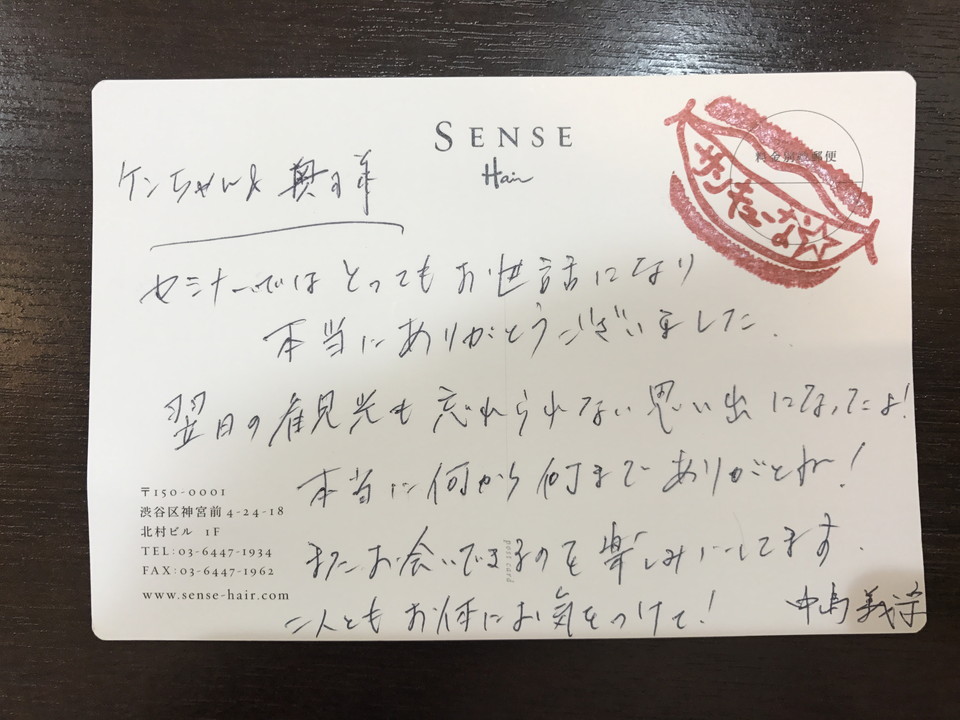 SENSE
Hair
料金別納郵便
サンキューな
ケンちゃん& 奥さま
セミナーではとってもお世話になり
本当にありがとうございました.
翌日の観光も忘れられない思い出になったよ!
本当に何から何までありがとね!
またお会いできるのを楽しみにしてます.
二人ともお体にお気をつけて!
中島
〒150-0001
渋谷区神宮前 4-24-18
北村ビル 1F
TEL:03-6447-1934
FAX:03-6447-1962
www.sense-hair.com
post card